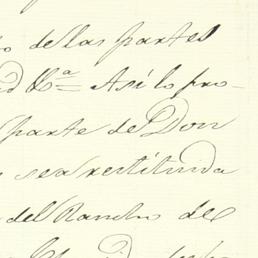 de las partes
&ª Así lo pro-
parte de Don
sea restituida
del Rancho de